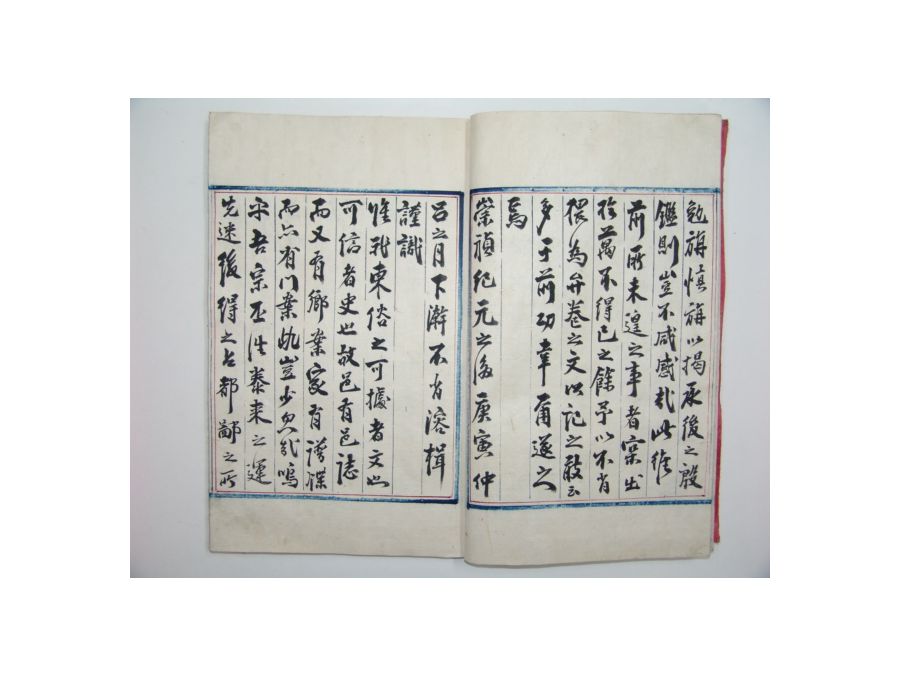 勉旃慎旃以揭承後之殷
鑑則豈不咸感哉此後
前所未遑之事者寔出
於萬不得已之餘予以不肖
猥為弁卷之文以記之敢云
多于前功幸甭遂之
焉
崇禎紀元之後庚寅仲
呂之月下澣不肖溶楫
謹識
惟我東俗之可據者文也
可信者史也故邑有邑誌
而又有鄉案家有譜牒
而亦有門案此豈少忽哉嗚
乎吾宗丕泰來之運
先迷後得之占都鄙之所